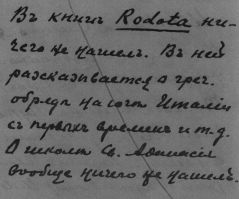 Въ книгѣ Rodota ни-
чего не нашелъ. Въ ней
разсказывается о греч.
обрядѣ на югѣ Италіи
съ первыхъ временъ и т.д.
О школѣ Св. Аѳанасія
вообще ничего не нашелъ.